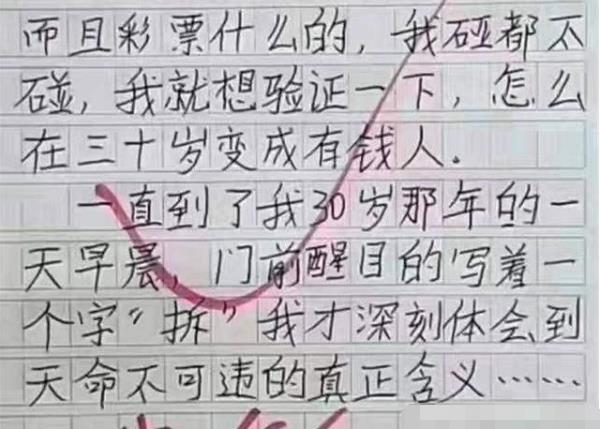 而且彩票什么的，我碰都不
碰，我就想验证一下，怎么
在三十岁变成有钱人.
一直到了我30岁那年的一
天早晨，门前醒目的写着一
个字“拆”我才深刻体会到
天命不可违的真正含义……